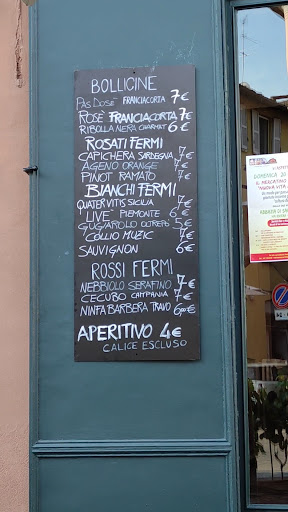 BOLLICINE
PAS DOSÉ FRANCIACORTA 7€
ROSÉ FRANCIACORTA 7€
RIBOLLA NERA CHARMAT 6€
ROSATI FERMI
CAPICHERA SARDEGNA 7€
AGENO ORANGE 7€
PINOT RAMATO 7€
BIANCHI FERMI
QUATER VITIS SICILIA 7€
"LIVE" PIEMONTE 6€
GUGIAROLO OLTREPÒ 6€
COLLIO MUZIC 7€
SAUVIGNON 6€
ROSSI FERMI
NEBBIOLO SERAFINO 7€
CECUBO CAMPANIA 7€
NINFA BARBERA TRAVO 6,00€
APERITIVO 4€
CALICE ESCLUSO
DOMENICA 20
IL MERCATINO